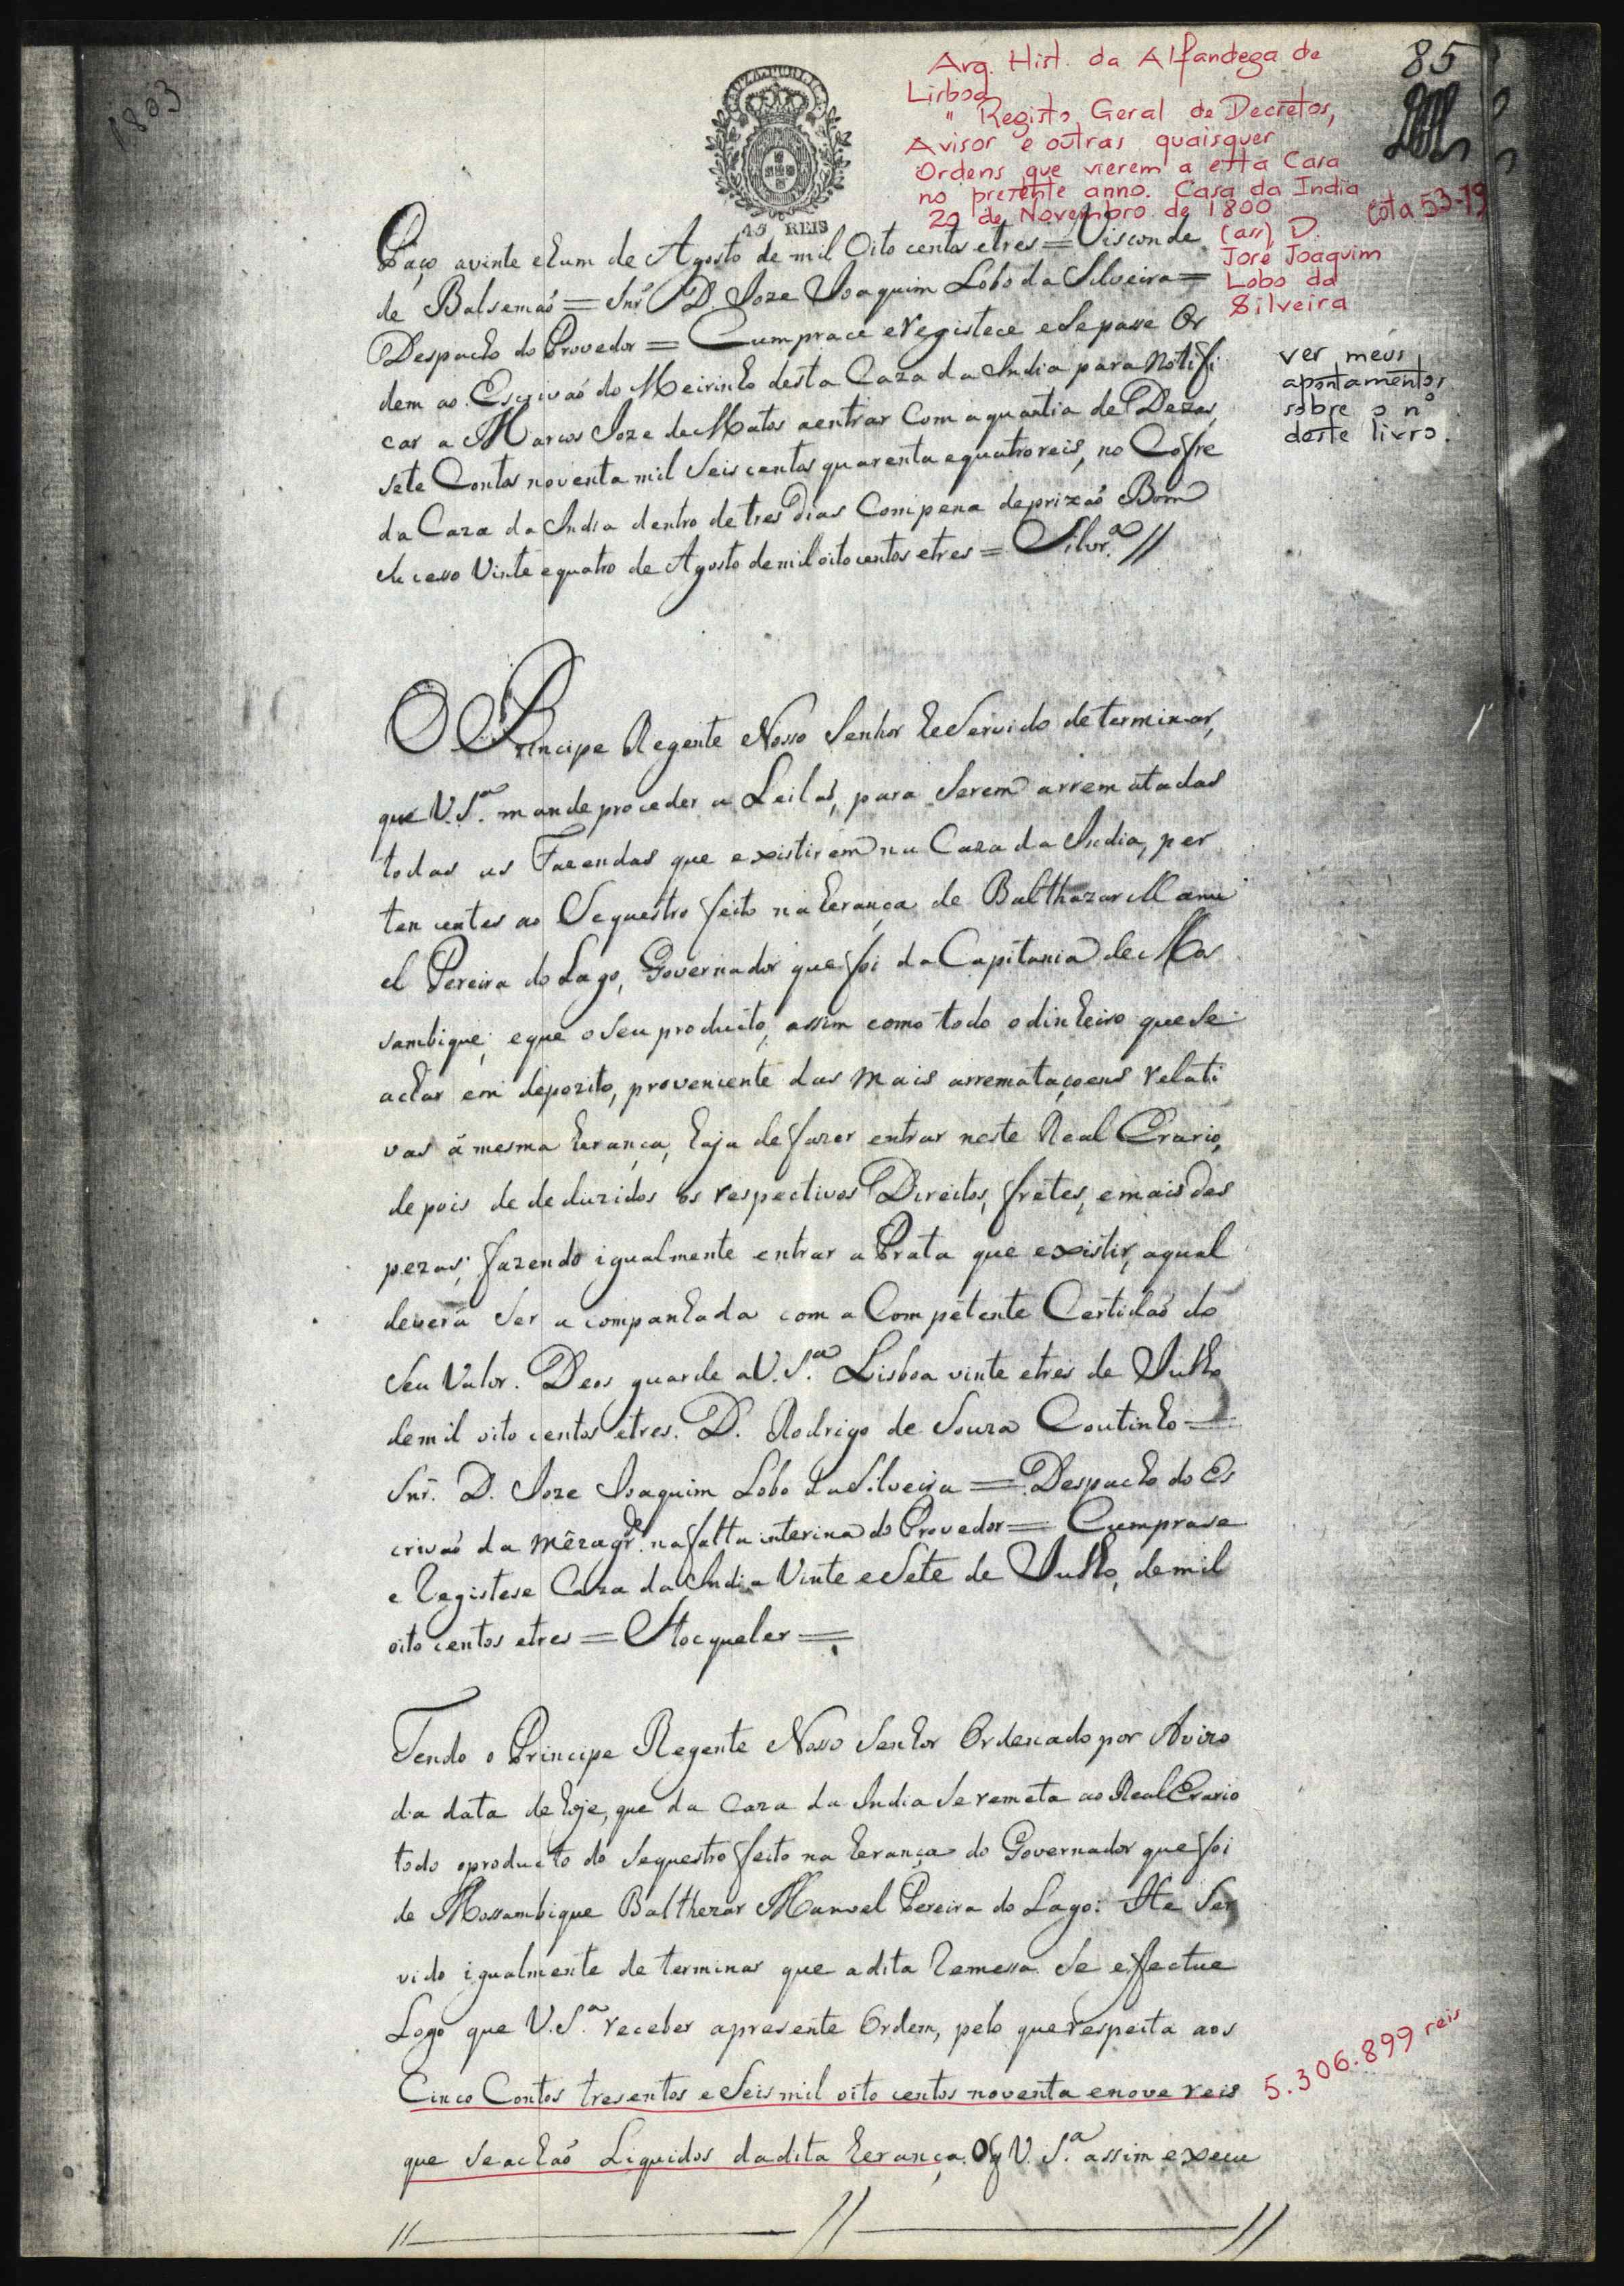 1803
Arq. Hist. da Alfandega de
Lisboa
" Registo Geral de Decretos,
Avisos e outras quaisquer
Ordens que vierem a esta Casa
no presente anno. Casa da India
20 de Novembro de 1800
(ass) D.
José Joaquim
Lobo da
Silveira
85
cota 53-19
ver meus
apontamentos
sobre o nº
deste livro.
45 REIS
Paço avinte ehum de Agosto de mil Oito centos etres = Visconde
de Balsemaõ = Snr. D. Joze Joaquim Lobo da Silveira =
Despacho do Provedor = Cumprace eregistece eSepasse Or
dem ao Escrivaõ do Meirinho desta Caza da India para Notifi
car a Marcos Joze deMatos aentrar Com aquantia de Dezas
sete Contos noventa mil Seis centos quarenta equatro reis, no Cofre
da Caza da India dentro de tres Dias Com pena deprizaõ Bom
Sucesso Vinte equatro de Agosto demil oito centos etres = Silvr.ª //
O Principe Regente Nosso Senhor heServido determinar,
que V. S.ª mande proceder a Leilaõ, para Serem arrematadas
todas as Fazendas que existirem na Caza da India, per
tencentes ao Sequestro feito na herança de Balthazar Manu
el Pereira do Lago, Governador que foi da Capitania de Mos
sambique; eque oSeu producto, assim como todo odinheiro queSe
achar em depozito, proveniente das mais arremataçoens relati
vas á mesma herança, haja defazer entrar neste Real Erario,
depois de deduzidos os respectivos Direitos, fretes, emais des
pezas; fazendo igualmente entrar a Prata que existir, aqual
deverá Ser acompanhada com a Competente Certidaõ do
Seu Valor. Deos guarde aV. S.ª Lisboa vinte etres de Julho
demil oito centos etres. D. Rodrigo de Souza Coutinho =
Snr. D. Joze Joaquim Lobo daSilveira = Despacho do Es
crivaõ da Mêzagr.de na falta interina do Provedor = Cumprase
e Registese Caza da India Vinte eSete de Julho, demil
oito centos etres = Stocqueler =
Tendo o Principe Regente Nosso Senhor Ordenado por Avizo
da data dehoje, que da Caza da India Se remeta ao Real Erario
todo oproducto do Sequestro feito na herança do Governador que foi
de Mossambique Balthezar Manoel Pereira do Lago: He Ser
vido igualmente determinar que adita Remessa Se effectue
Logo que V. S.ª receber apresente Ordem, pelo querespeita aos
Cinco Contos tresentos eSeis mil oito centos noventa enove reis
5.306.899 reis
que Seachaõ Liquidos dadita herança. Oq V. S.ª assim execu
//————//————//